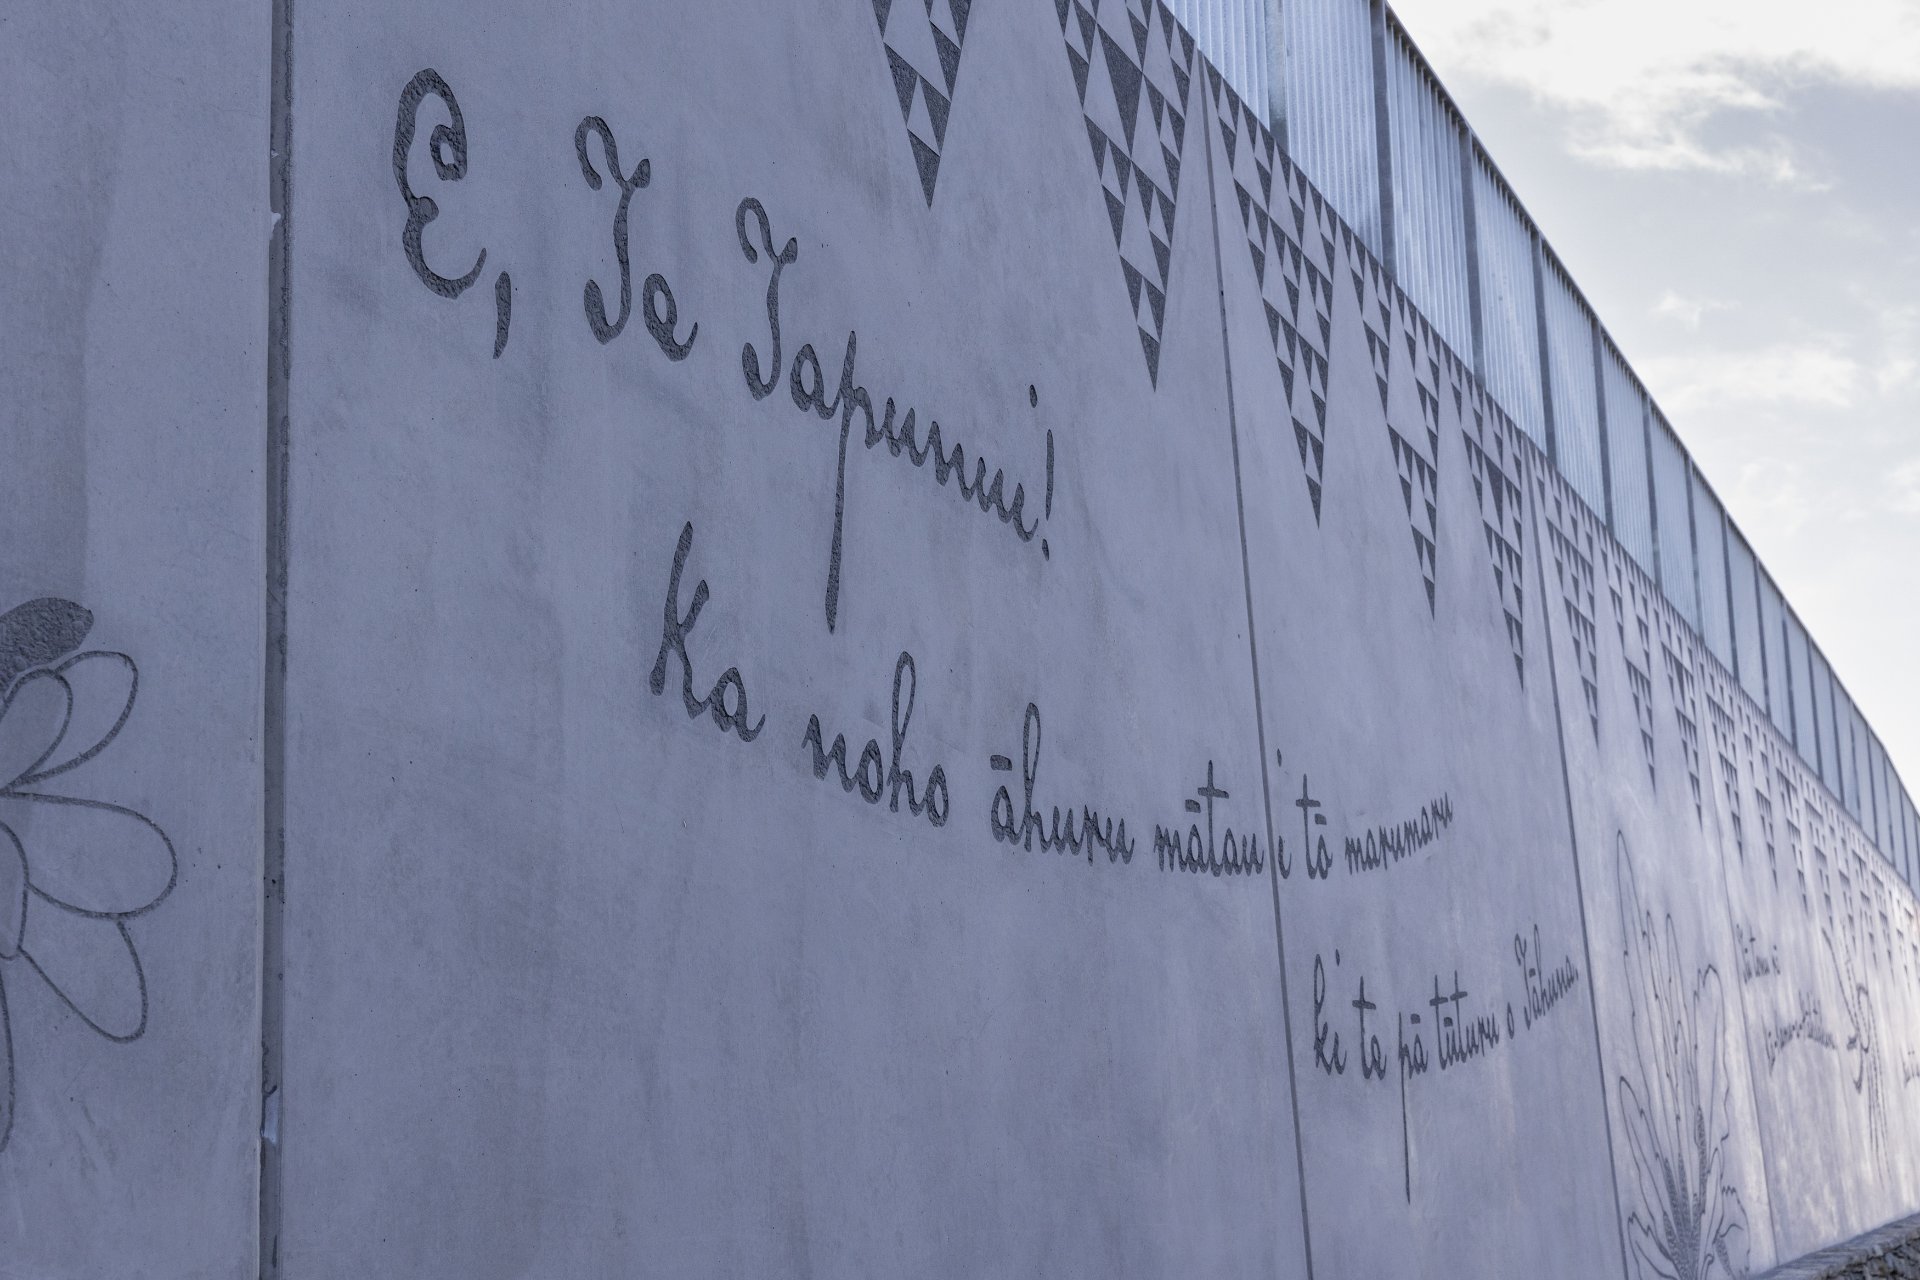 E, Te Tapunui!
Ka noho āhuru mātau i tō marumaru
ki te pā tūturu o Tāhuna.